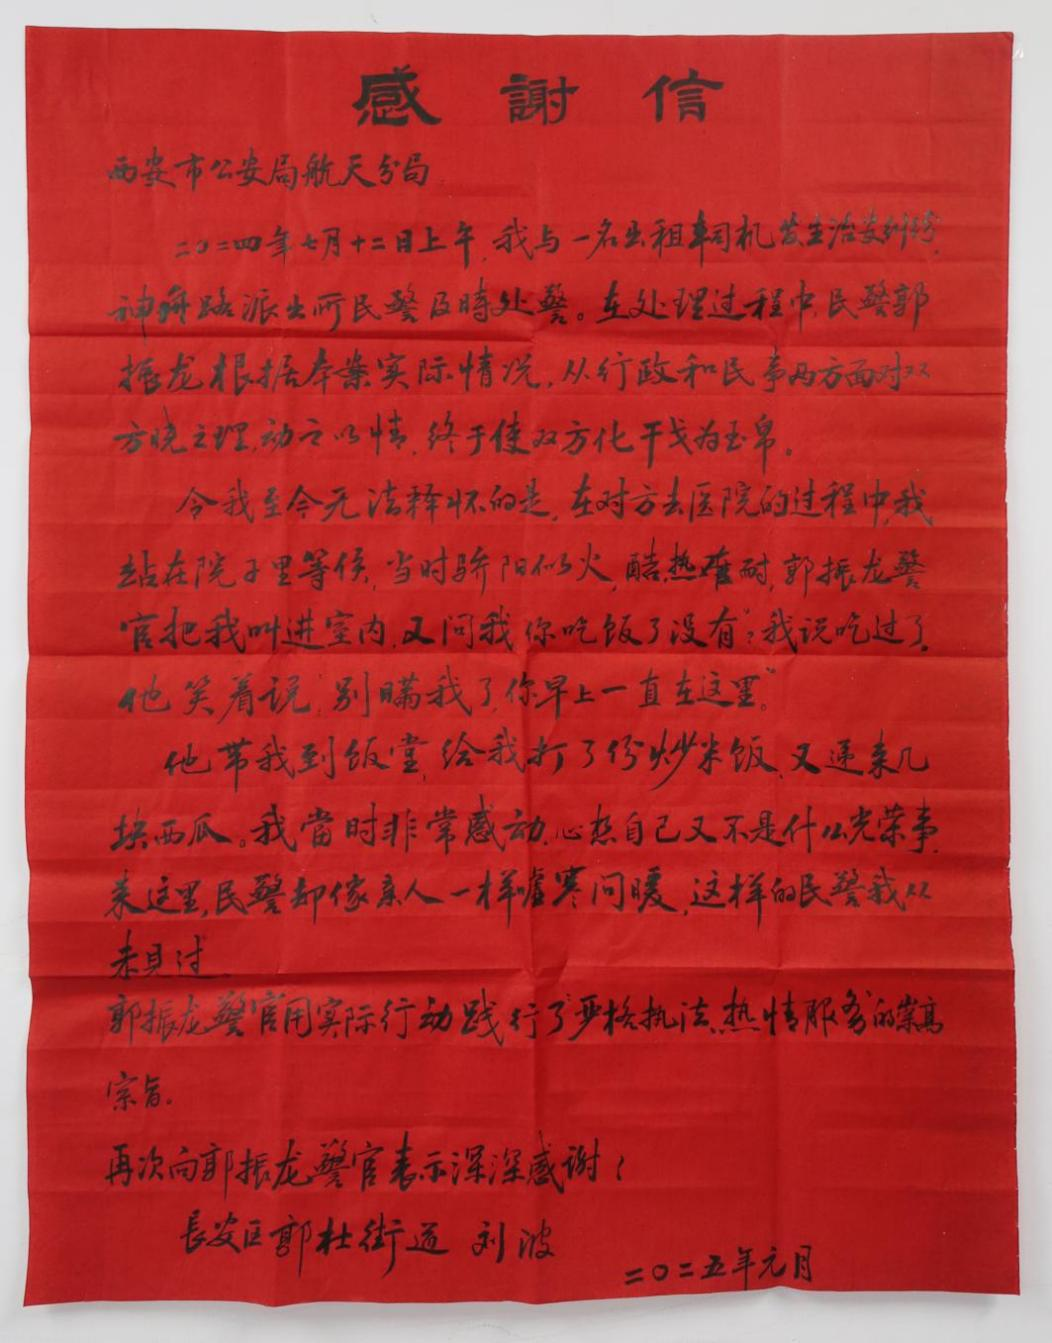 感謝信
西安市公安局航天分局
二〇二四年七月十二日上午,我与一名出租车司机发生治安纠纷,
神舟路派出所民警及時处警。在处理过程中,民警郭
振龙根据本案实际情况,从行政和民事两方面对双
方晓之理,动之以情,终于使双方化干戈为玉帛。
令我至今无法释怀的是,在对方去医院的过程中,我
站在院子里等候,当时骄阳似火,酷热难耐,郭振龙警
官把我叫进室内,又问我"你吃饭了没有"?我说吃过了。
他笑着说"别瞒我了,你早上一直在这里"。
他带我到饭堂,给我打了份炒米饭,又递来几
块西瓜。我當时非常感动,心想自己又不是什么光荣事,
来这里,民警却像亲人一样嘘寒问暖,这样的民警我从
未見过。
郭振龙警官用实际行动践行了"严格执法,热情服务"的崇高
宗旨。
再次向郭振龙警官表示深深感谢!
長安区郭杜街道 刘波
二〇二五年元月